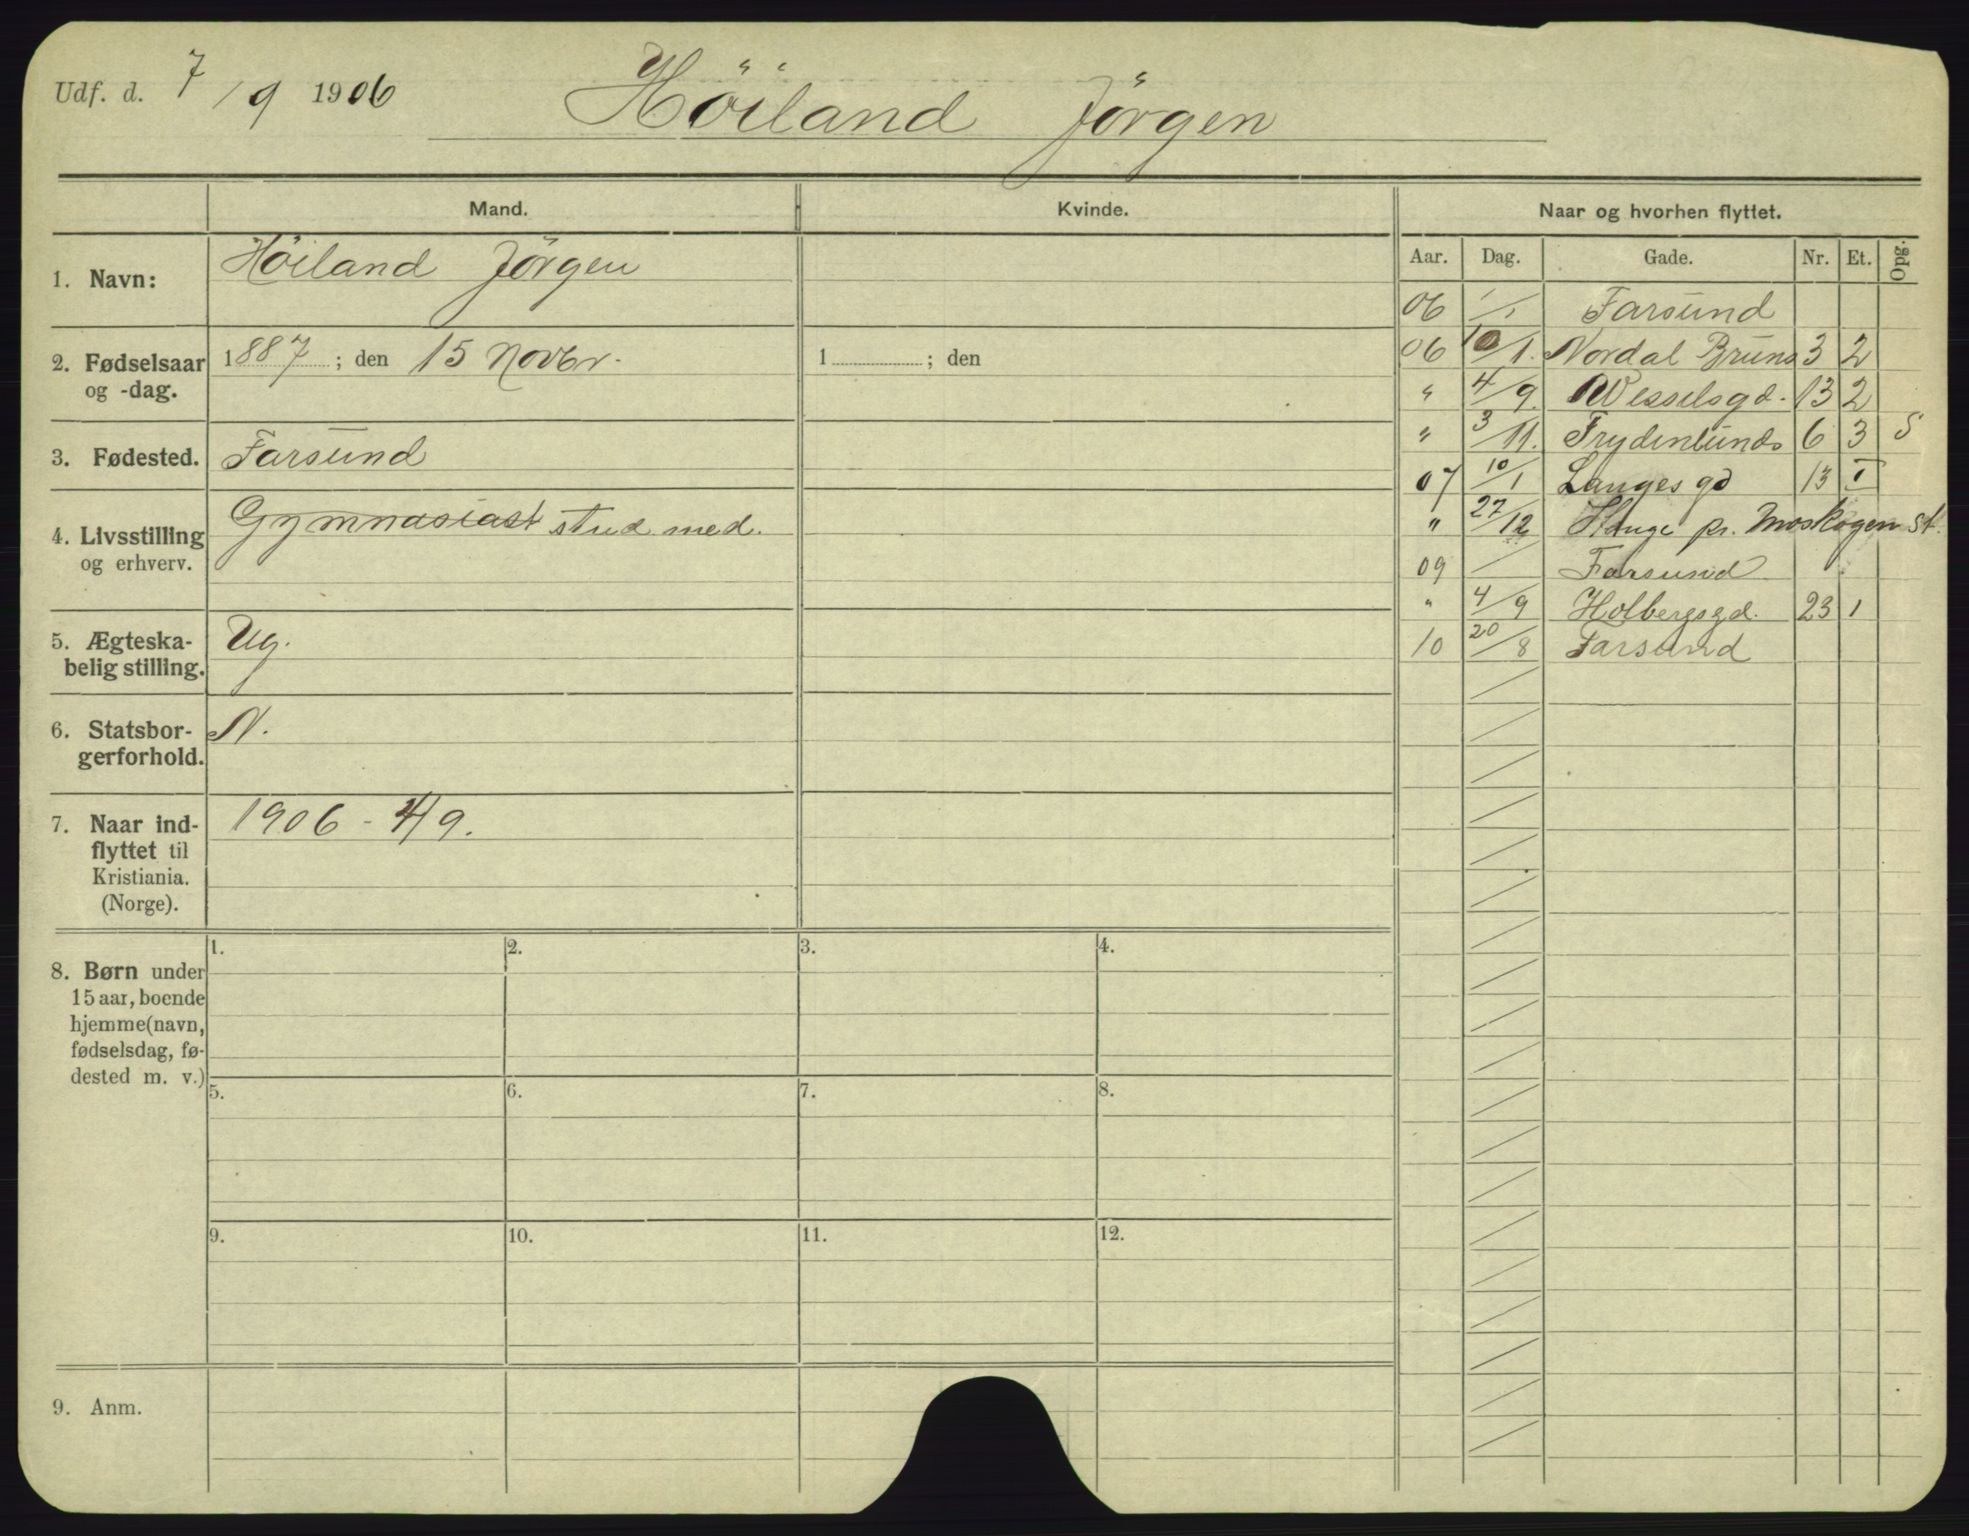 Udf. d. 7/9 1906
Höiland Jörgen
Mand.
Kvinde.
Naar og hvorhen flyttet.
Aar. Dag. Gade. Nr. Et. Opg.
1. Navn: Höiland Jörgen
2. Fødselsaar og -dag. 1887; den 15 Novbr. 1 ; den
3. Fødested. Farsund
4. Livsstilling og erhverv. Gymnasiast stud med.
5. Ægteska-
belig stilling. Ug.
6. Statsbor-
gerforhold. N.
7. Naar ind-
flyttet til
Kristiania.
(Norge).
1906 - 4/9.
06 1/1 Farsund
06 10/1. Nordal Bruns 3 2
" 4/9. Wesselsgd. 13 2
" 3/11. Frydenlunds 6 3 S
07 10/1 Langes gd 13 I
" 27/12 pr. Moskogen st.
09 / Farsund
" 4/9 Holbergsgd. 23 1
10 20/8 Farsund
8. Børn under
15 aar, boende
hjemme (navn,
fødselsdag, fø-
dested m. v.)
1. 2. 3. 4.
5. 6. 7. 8.
9. 10. 11. 12.
9. Anm.